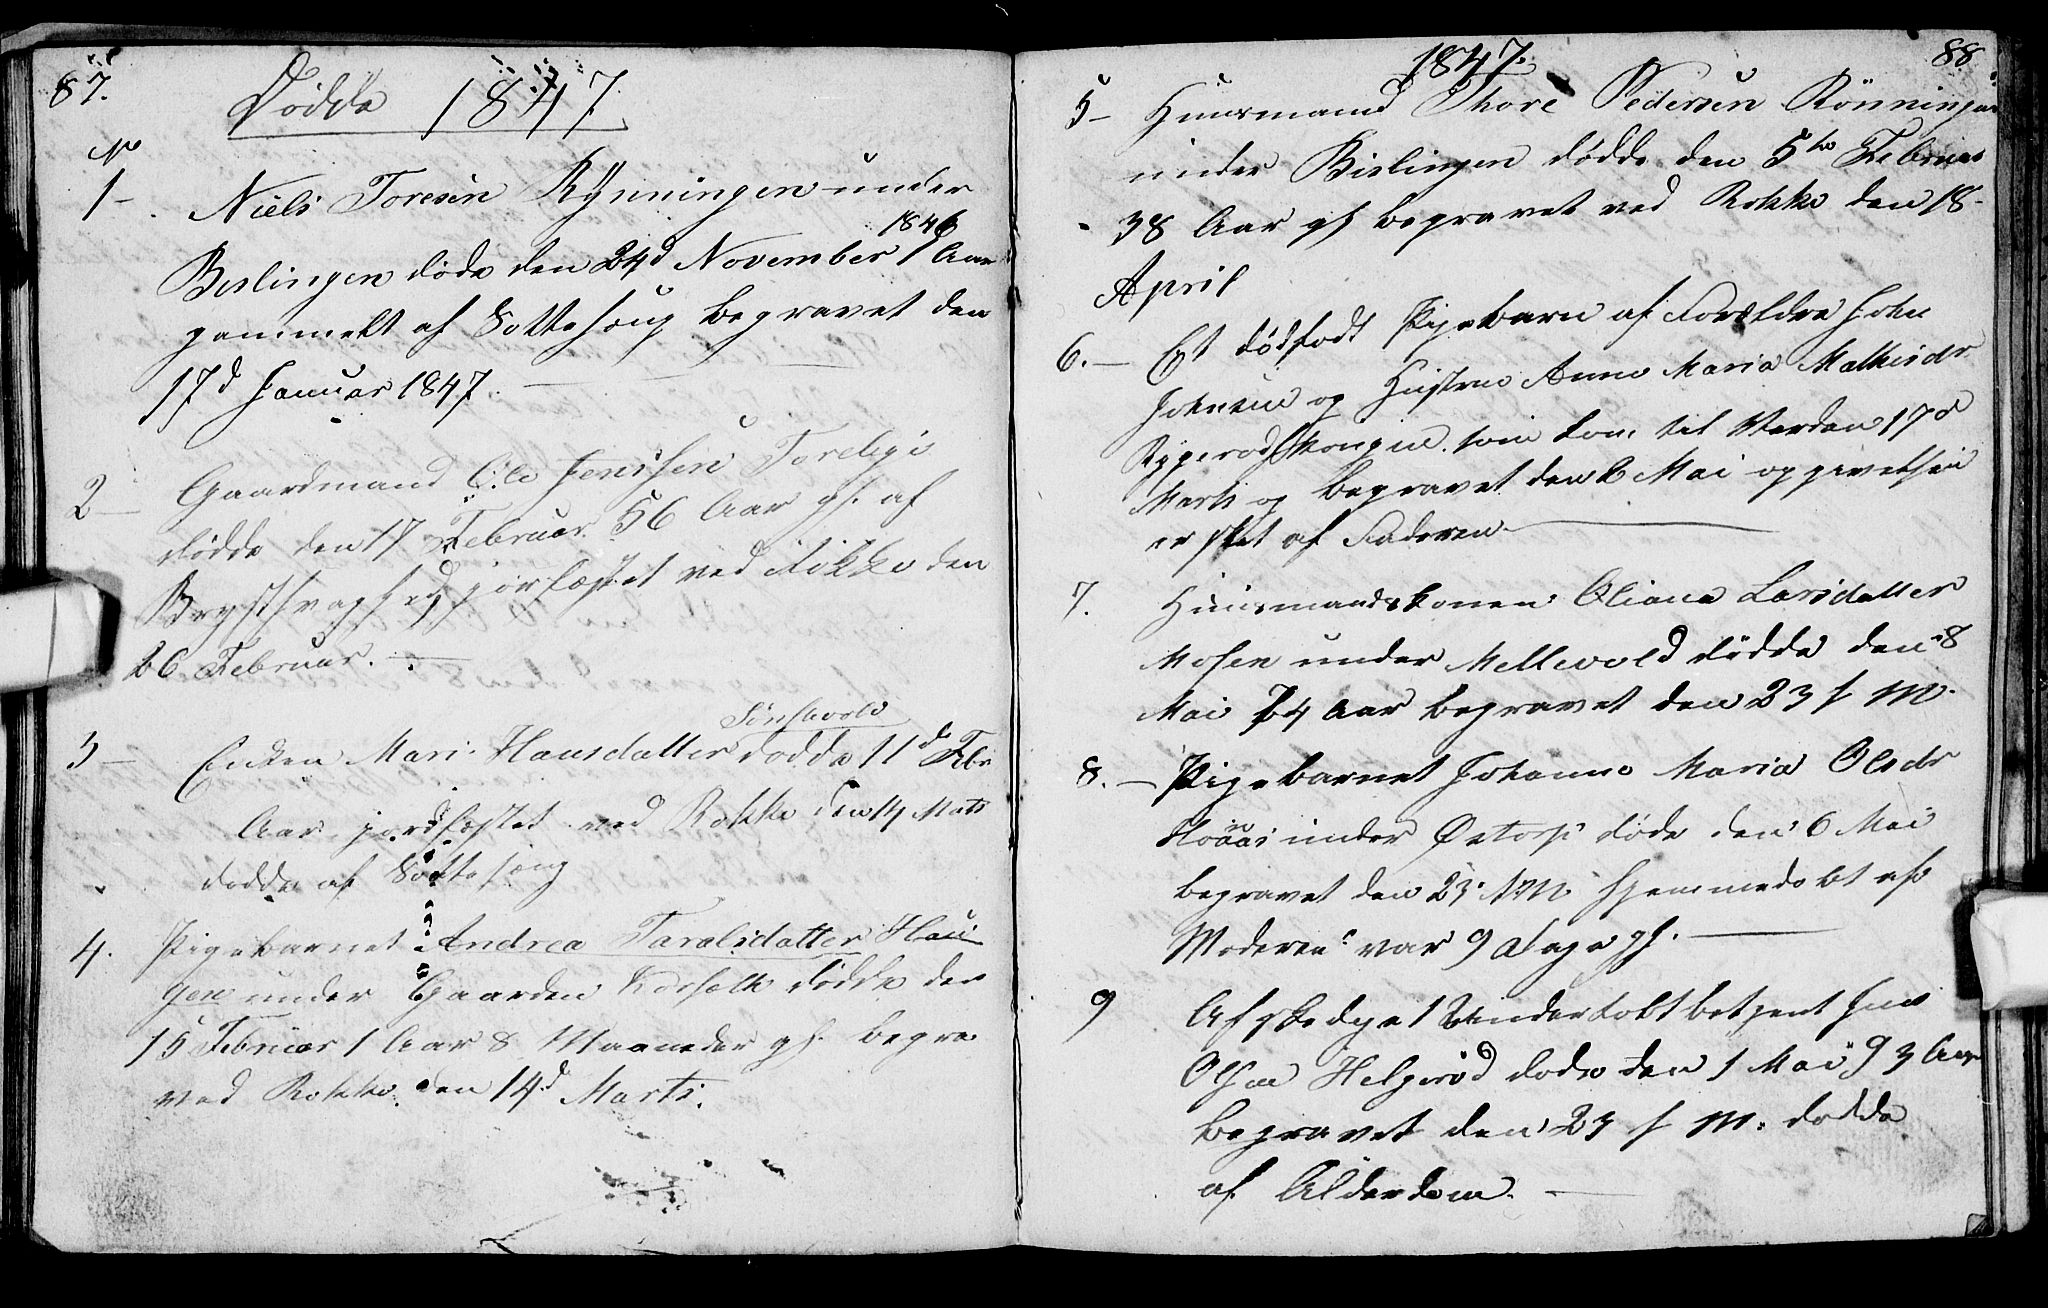 87.
Dödde 1847.
No
1 - Niels Toresen Rynningen under
1846
Bislingen döde den 24d November 1 Aar
gammelt af Sottesöug begravet den
17d Januar 1847.
2 - Gaardmand Ole Jenssen Torebye
dödde den 17 Februar 56 Aar gl. af
Brystsvaghed jorfæstet ved Rokke den
26 Februar.
3 - Enken Mari Hansdatter dödde 11d Febr
Aar jordfæstet ved Rokke den 14 Mats
dödde af Sottesöug
4. Pigebarnet Andrea Taralsdatter Hau
gen under Gaarden dödde den
15 Februar 1 Aar 8 Maaneder gl. begra
ved Rokke den 14d Marts.
1847. 88
5 - Huusmand Thore Pedersen Rönningen
under Bislingen dödde den 5te Februar
38 Aar gl begravet ved Rokke den 18-
April
6. - Et dödfödt Pigebarn af Forældre John
Johnsen og Hustrue Anne Maria Mathisdr
som kom til Verden 17d
Marts og begravet den 2 Mai opgivelsen
er sket af Faderen
7. Huusmandskonen Oliana Larsdatter
Mosen under Mellevold dödde den 8
Mai 74 Aar begravet den 23 s M.
8. - Pigebarnet Johanne Maria Olsdr
under Östorp döde den 6 Mai
begravet den 23 s M. hjemmedöbt af
Moderen var 9 Dage gl.
9 Afskediget
Olsen Helgeröd döde den 1 Mai 93 Aar
begravet den 23 s M. dödde
af Alderdom.